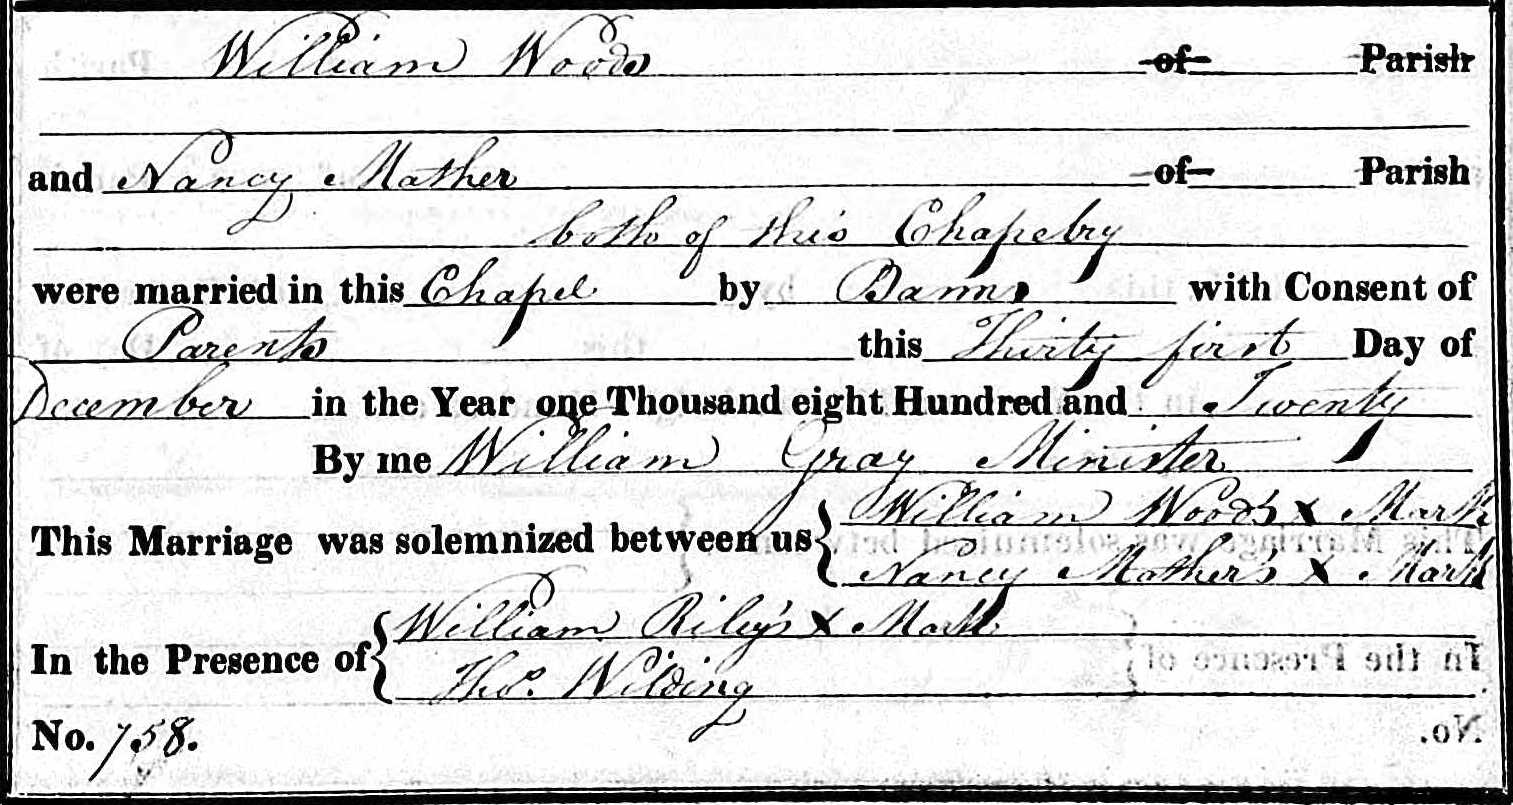 William Woods of Parish
and Nancy Mather of Parish
both of this Chapelry
were married in this Chapel by Banns with Consent of
Parents this Thirty first Day of
December in the Year one Thousand eight Hundred and Twenty
By me William Gray Minister
This Marriage was solemnized between us { William Woods's x Mark
Nancy Mather's x Mark
In the Presence of { William Riley's x Mark
Thos. Wilding
No. 758.